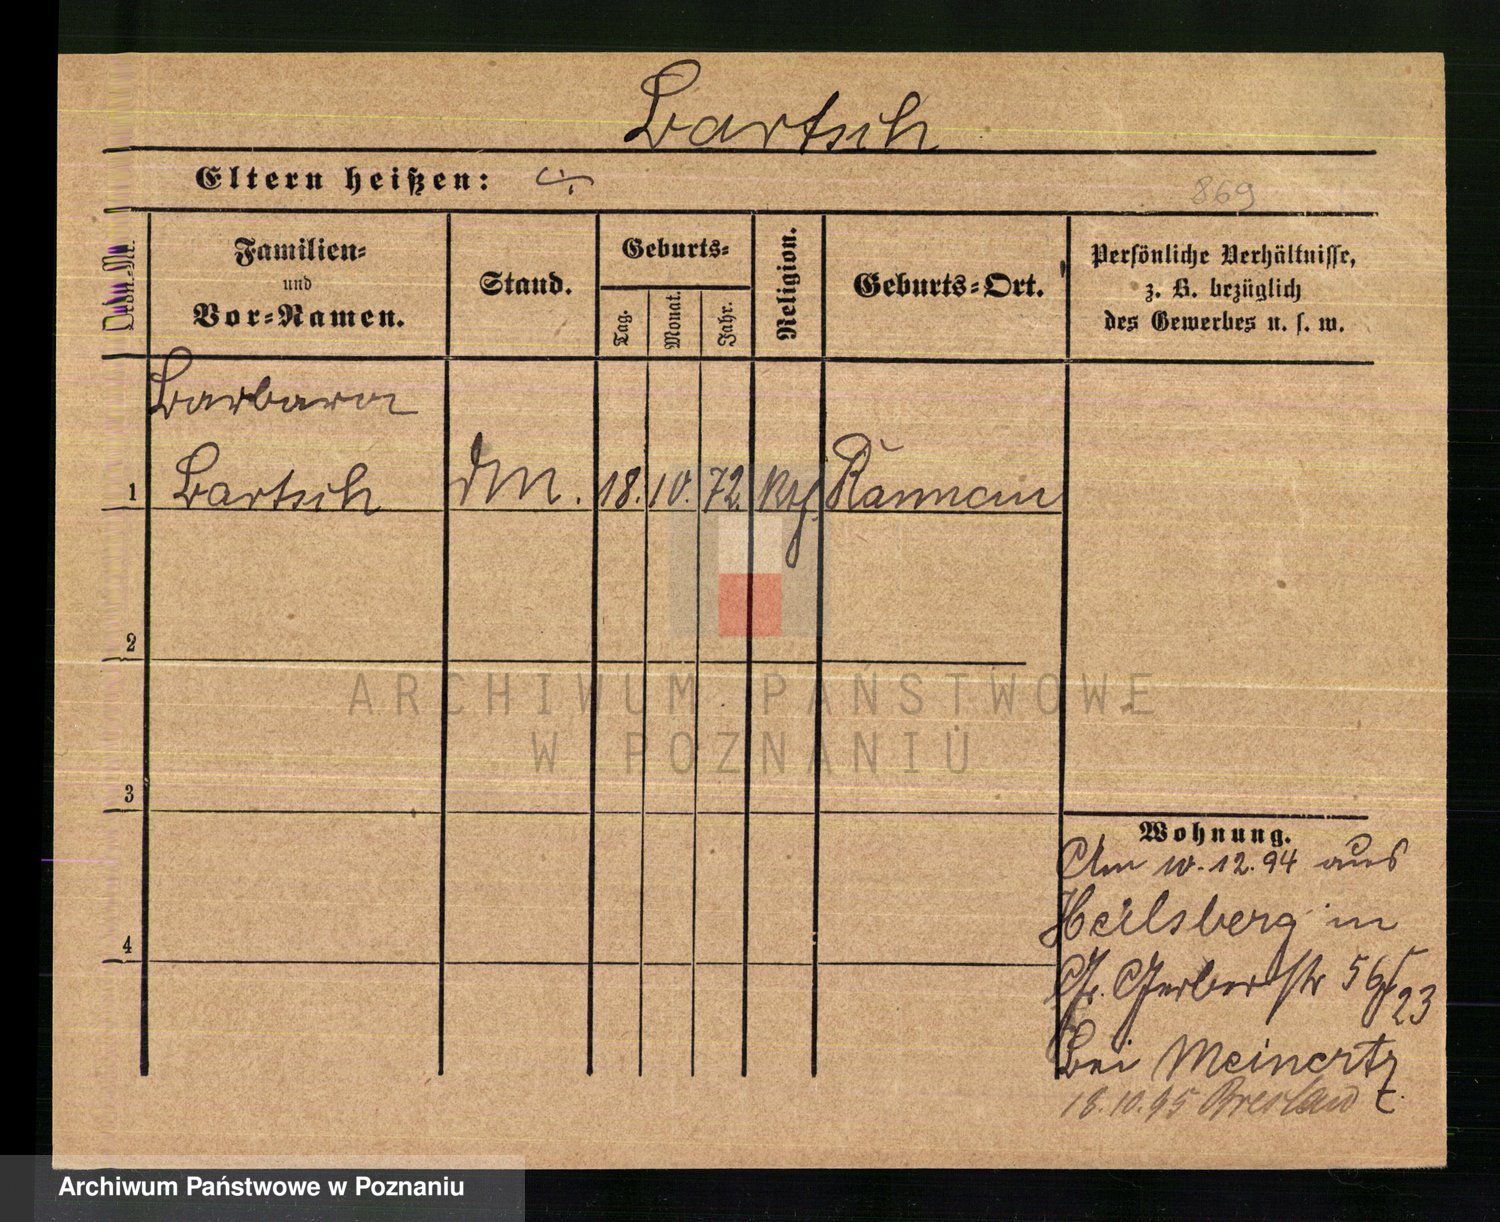 Bartsch
Eltern heißen:
869
Ordn.-Nr.
Familien-
und
Vor-Namen.
Stand.
Geburts-
Tag.
Monat.
Jahr.
Religion.
Geburts-Ort.
Persönliche Verhältnisse,
z. B. bezüglich
des Gewerbes u. s. w.
Barbara
1 Bartsch DM. 18. 10. 72.
2
3
4
Wohnung.
Am 10.12.94 aus
Heilsberg in
Gr. Gerberstr 56
23
bei Meinertz
18.10.95 Breslau
ARCHIWUM PAŃSTWOWE
W POZNANIU
Archiwum Państwowe w Poznaniu